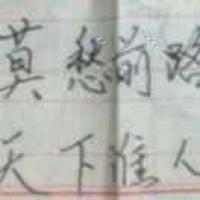 莫愁前路
天下谁人